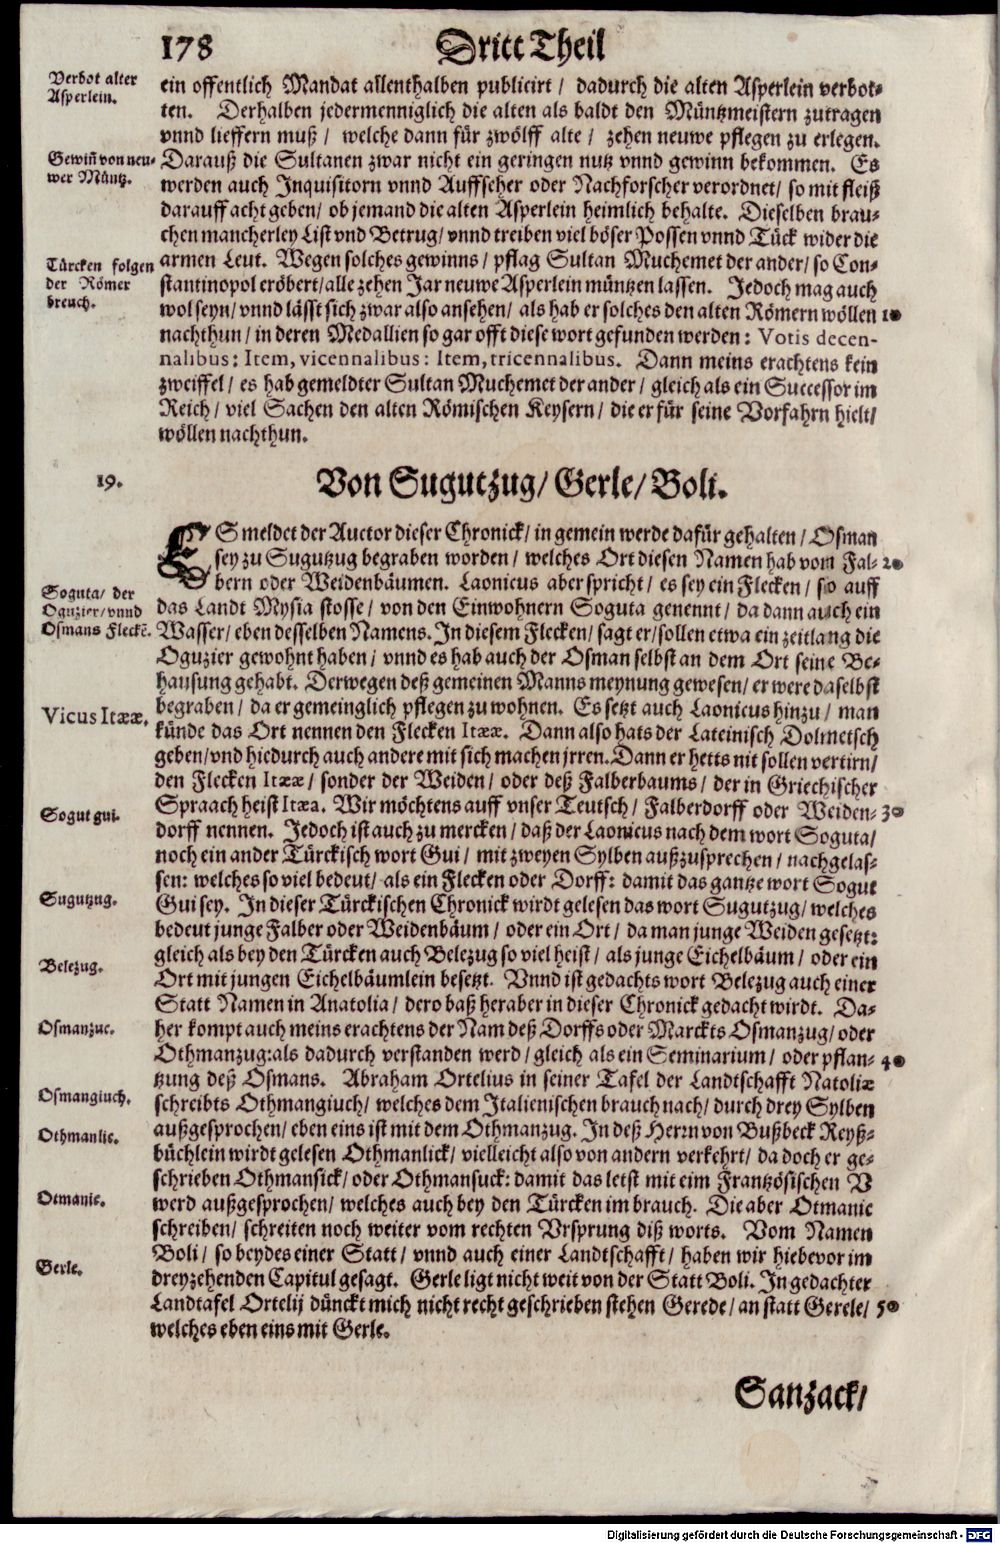 178 Dritt Theil
Verbot alter
Asperlein.
ein offentlich Mandat allenthalben publicirt / dadurch die alten Asperlein verbot-
ten. Derhalben jedermenniglich die alten als baldt den Müntzmeistern zutragen
vnnd lieffern muß / welche dann für zwölff alte / zehen neuwe pflegen zu erlegen.
Gewiñ von neu-
wer Müntz.
Darauß die Sultanen zwar nicht ein geringen nutz vnnd gewinn bekommen. Es
werden auch Inquisitorn vnnd Auffseher oder Nachforscher verordnet / so mit fleiß
darauff acht geben / ob jemand die alten Asperlein heimlich behalte. Dieselben brau-
chen mancherley List vnd Betrug / vnnd treiben viel böser Possen vnnd Tück wider die
Türcken folgen
der Römer
breuch.
armen Leut. Wegen solches gewinns / pflag Sultan Muchemet der ander / so Con-
stantinopol eröbert / alle zehen Jar neuwe Asperlein müntzen lassen. Jedoch mag auch
wol seyn / vnnd lässt sich zwar also ansehen / als hab er solches den alten Römern wöllen 10
nachthun / in deren Medallien so gar offt diese wort gefunden werden : Votis decen-
nalibus : Item, vicennalibus : Item, tricennalibus. Dann meins erachtens kein
zweiffel / es hab gemeldter Sultan Muchemet der ander / gleich als ein Successor im
Reich / viel Sachen den alten Römischen Keysern / die er für seine Vorfahrn hielt /
wöllen nachthun.
19. Von Sugutzug / Gerle / Boli.
ES meldet der Auctor dieser Chronick / in gemein werde dafür gehalten / Osman
sey zu Sugutzug begraben worden / welches Ort diesen Namen hab vom Fal- 20
bern oder Weidenbäumen. Laonicus aber spricht / es sey ein Flecken / so auff
Soguta / der
Oguzier / vnnd
Osmans Fleckẽ.
das Landt Mysia stosse / von den Einwohnern Soguta genennt / da dann auch ein
Wasser / eben desselben Namens. In diesem Flecken / sagt er / sollen etwa ein zeitlang die
Oguzier gewohnt haben / vnnd es hab auch der Osman selbst an dem Ort seine Be-
hausung gehabt. Derwegen deß gemeinen Manns meynung gewesen / er were daselbst
begraben / da er gemeinglich pflegen zu wohnen. Es setzt auch Laonicus hinzu / man
Vicus Itææ.
künde das Ort nennen den Flecken Itææ. Dann also hats der Lateinisch Dolmetsch
geben / vnd hiedurch auch andere mit sich machen jrren. Dann er hetts nit sollen vertirn /
den Flecken Itææ / sonder der Weiden / oder deß Falberbaums / der in Griechischer
Spraach heist Itæa. Wir möchtens auff vnser Teutsch / Falberdorff oder Weiden- 30
Sogut gui.
dorff nennen. Jedoch ist auch zu mercken / daß der Laonicus nach dem wort Soguta /
noch ein ander Türckisch wort Gui / mit zweyen Sylben außzusprechen / nachgelas-
sen : welches so viel bedeut / als ein Flecken oder Dorff : damit das gantze wort Sogut
Sugutzug.
Gui sey. In dieser Türckischen Chronick wirdt gelesen das wort Sugutzug / welches
bedeut junge Falber oder Weidenbäum / oder ein Ort / da man junge Weiden gesetzt:
gleich als bey den Türcken auch Belezug so viel heist / als junge Eichelbäum / oder ein
Belezug.
Ort mit jungen Eichelbäumlein besetzt. Vnnd ist gedachts wort Belezug auch einer
Statt Namen in Anatolia / dero baß heraber in dieser Chronick gedacht wirdt. Da-
Osmanzuc.
her kompt auch meins erachtens der Nam deß Dorffs oder Marckts Osmanzug / oder
Othmanzug: als dadurch verstanden werd / gleich als ein Seminarium / oder pflan- 40
tzung deß Osmans. Abraham Ortelius in seiner Tafel der Landtschafft Natoliæ
Osmangiuch.
schreibts Othmangiuch / welches dem Italienischen brauch nach / durch drey Sylben
Othmanlic.
außgesprochen / eben eins ist mit dem Othmanzug. In deß Herrn von Bußbeck Reyß-
büchlein wirdt gelesen Othmanlick / vielleicht also von andern verkehrt / da doch er ge-
schrieben Othmansick / oder Othmansuck : damit das letst mit eim Frantzösischen V
Otmanic.
werd außgesprochen / welches auch bey den Türcken im brauch. Die aber Otmanic
schreiben / schreiten noch weiter vom rechten Vrsprung diß worts. Vom Namen
Boli / so beydes einer Statt / vnnd auch einer Landtschafft / haben wir hiebevor im
Gerle.
dreyzehenden Capitul gesagt. Gerle ligt nicht weit von der Statt Boli. In gedachter
Landtafel Ortelij dünckt mich nicht recht geschrieben stehen Gerede / an statt Gerele / 50
welches eben eins mit Gerle.
Sanzack /
Digitalisierung gefördert durch die Deutsche Forschungsgemeinschaft - DFG